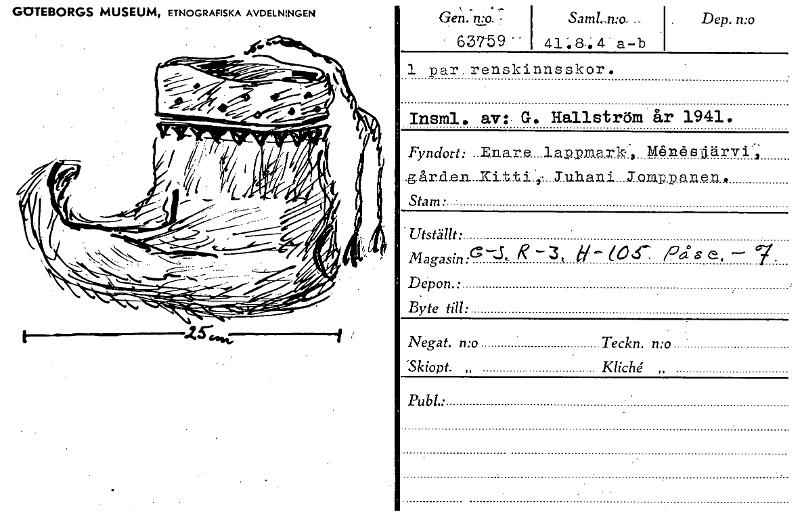 GÖTEBORGS MUSEUM, ETNOGRAFISKA AVDELNINGEN
25 cm
Gen. n:o Saml. n:o Dep. n:o
63759 41.8.4 a-b
1 par renskinnsskor.
Insml. av: G. Hallström år 1941.
Fyndort: Enare lappmark, Menesjärvi,
gården Kitti, Juhani Jomppanen.
Stam:
Utställt:
Magasin: G-S. R-3. H-105. Påse. - 7.
Depon.:
Byte till:
Negat. n:o Teckn. n:o
Skiopt. „ Kliché „
Publ.: